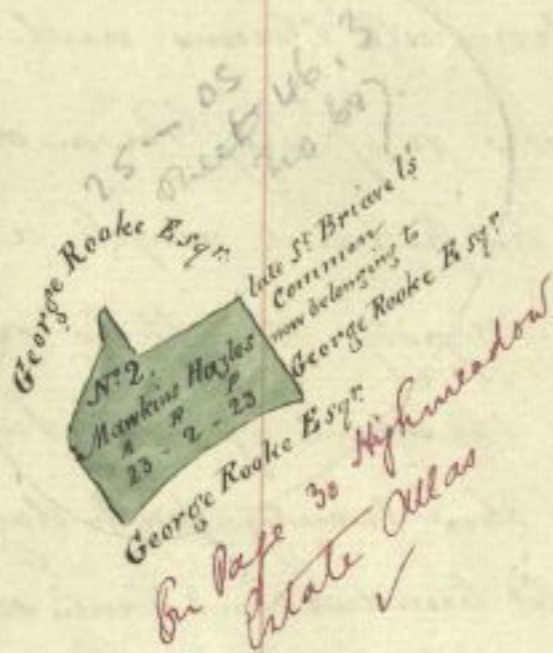 25 - 05
Sheet 46.3
No 647.
George Rooke Esqr.
late St. Briavels
Common
now belonging to
George Rooke Esqr
No. 2.
Mawkins Hazles
A R P
23 - 2 - 23
George Rooke Esqr.
On Page 30 Highmeadow
Estate Atlas
✓